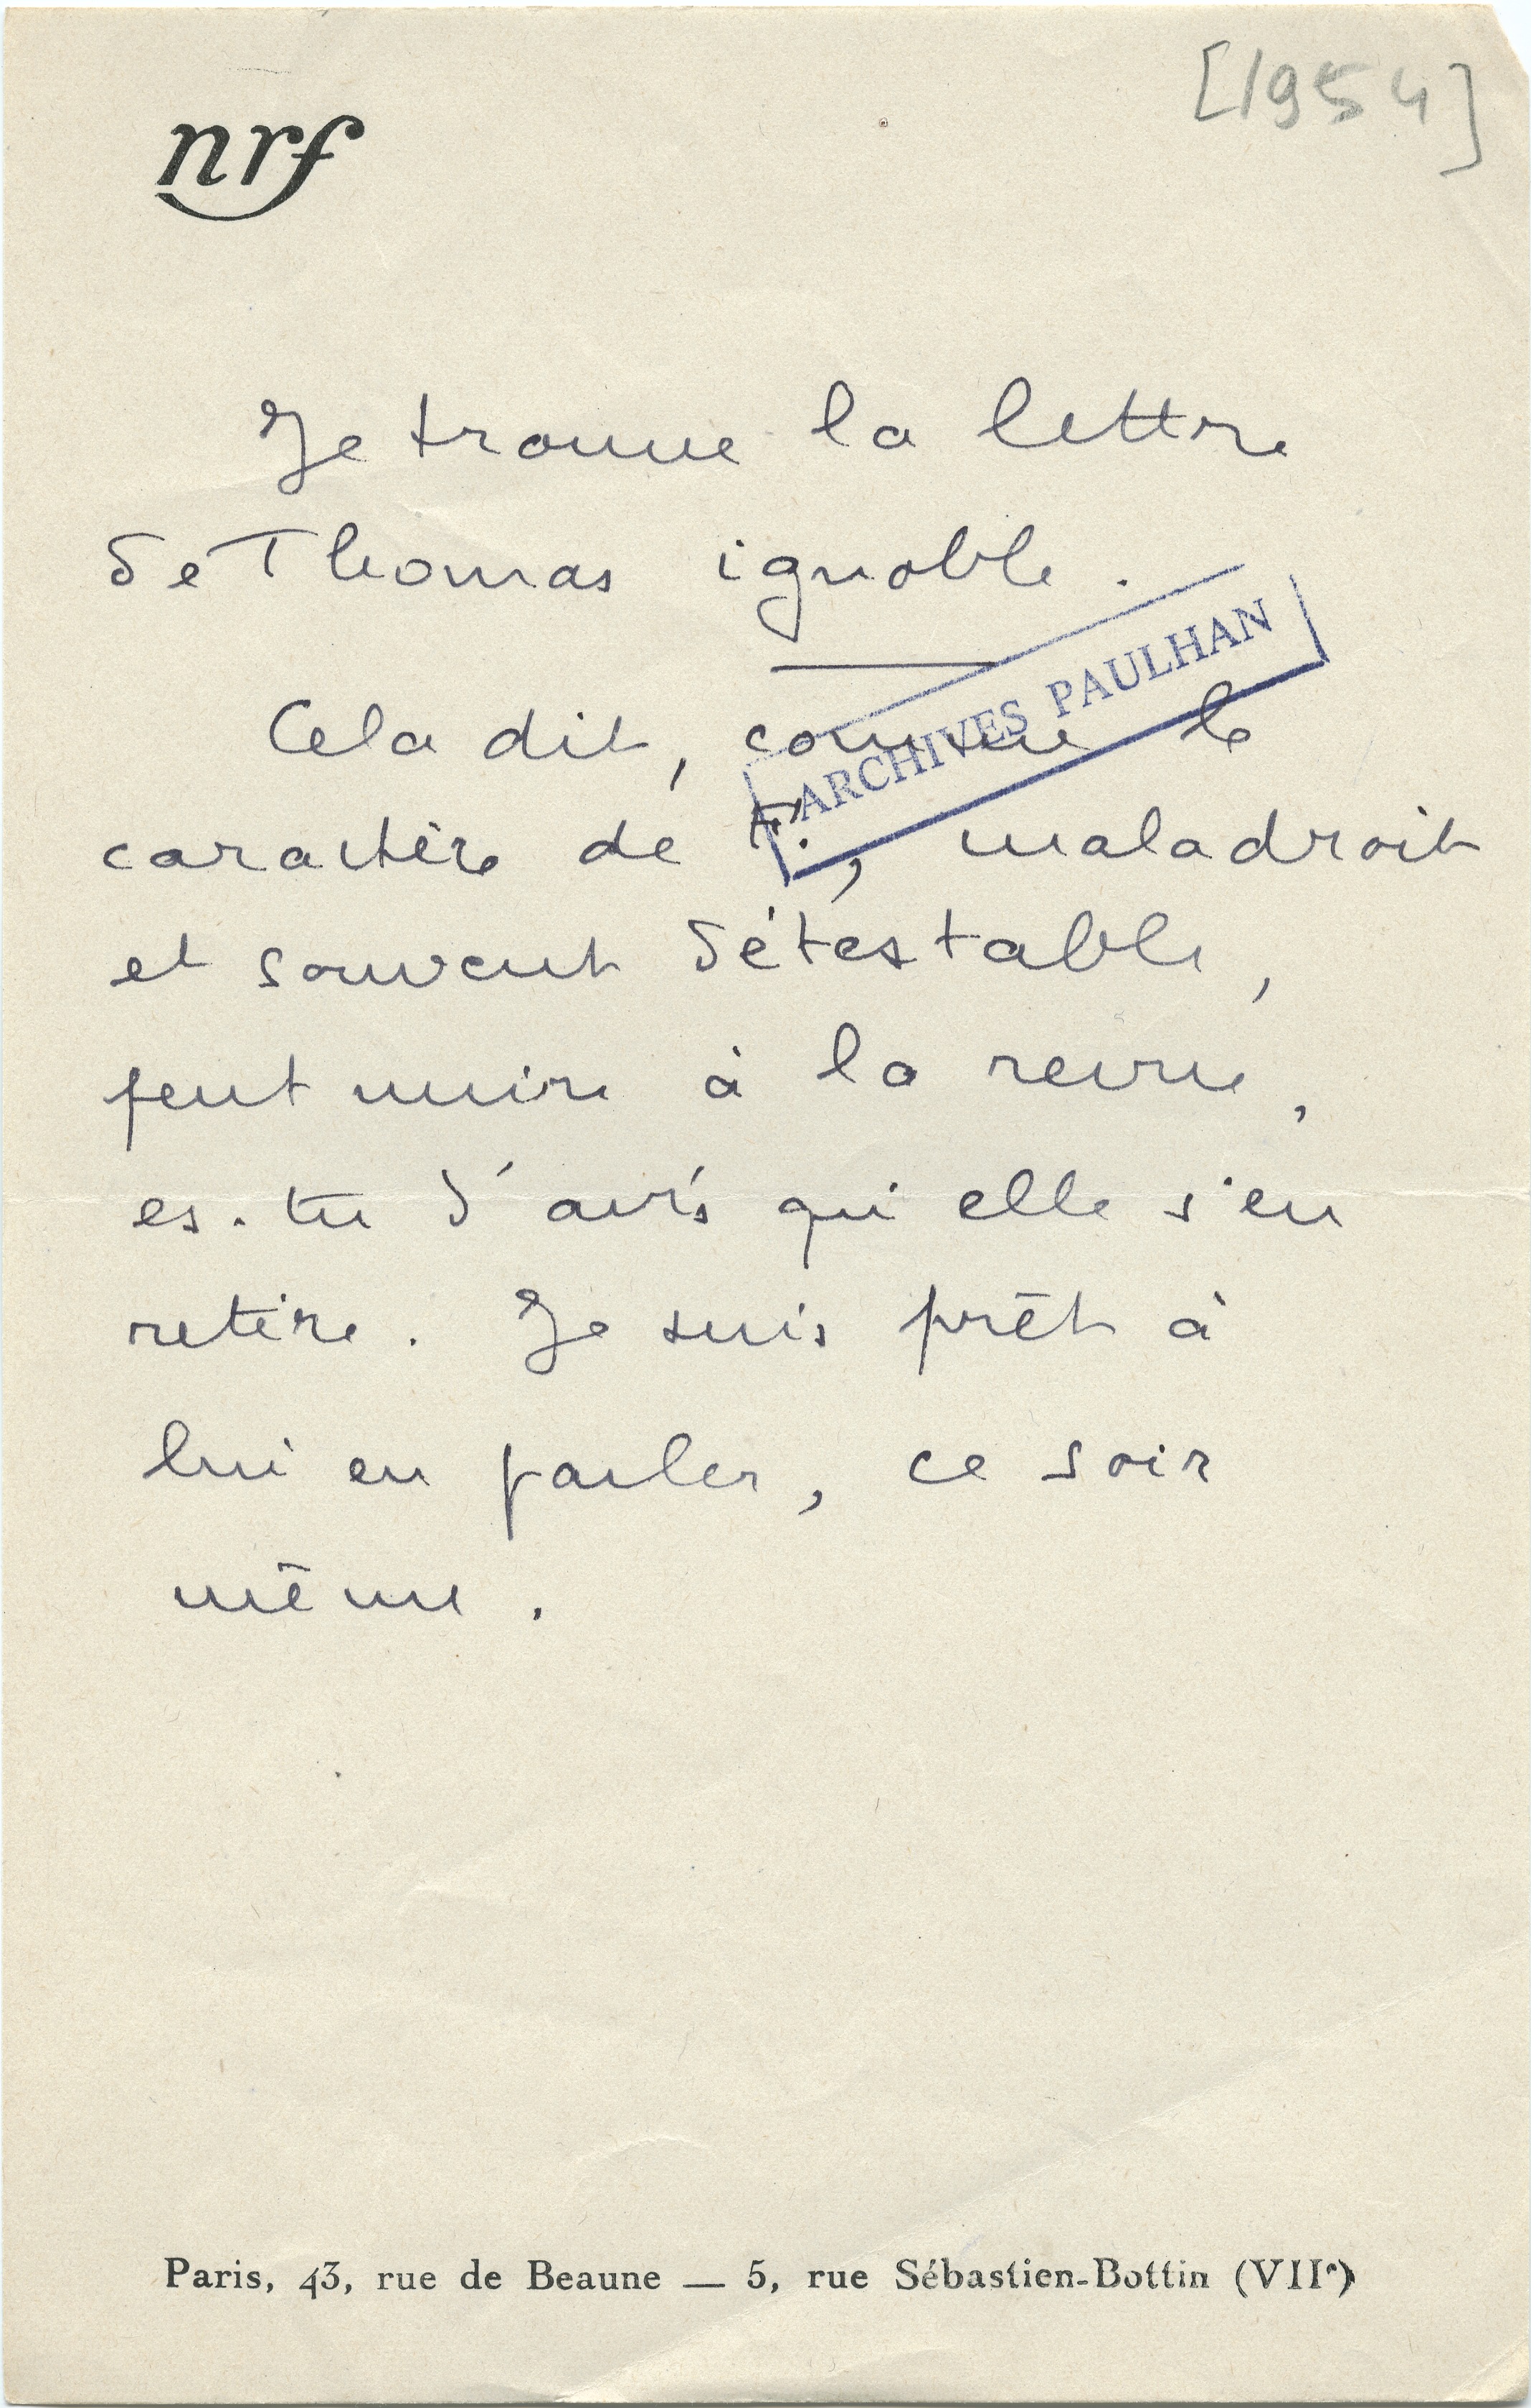 [1954]
nrf
Je trouve la lettre
de Thomas ignoble.
ARCHIVES PAULHAN
Cela dit, comme le
caractère de , maladroit
et souvent détestable,
peut nuire à la revue,
es-tu d'avis qu'elle s'en
retire. Je suis prêt à
lui en parler, ce soir
même.
Paris, 43, rue de Beaune — 5, rue Sébastien-Bottin (VIIe)